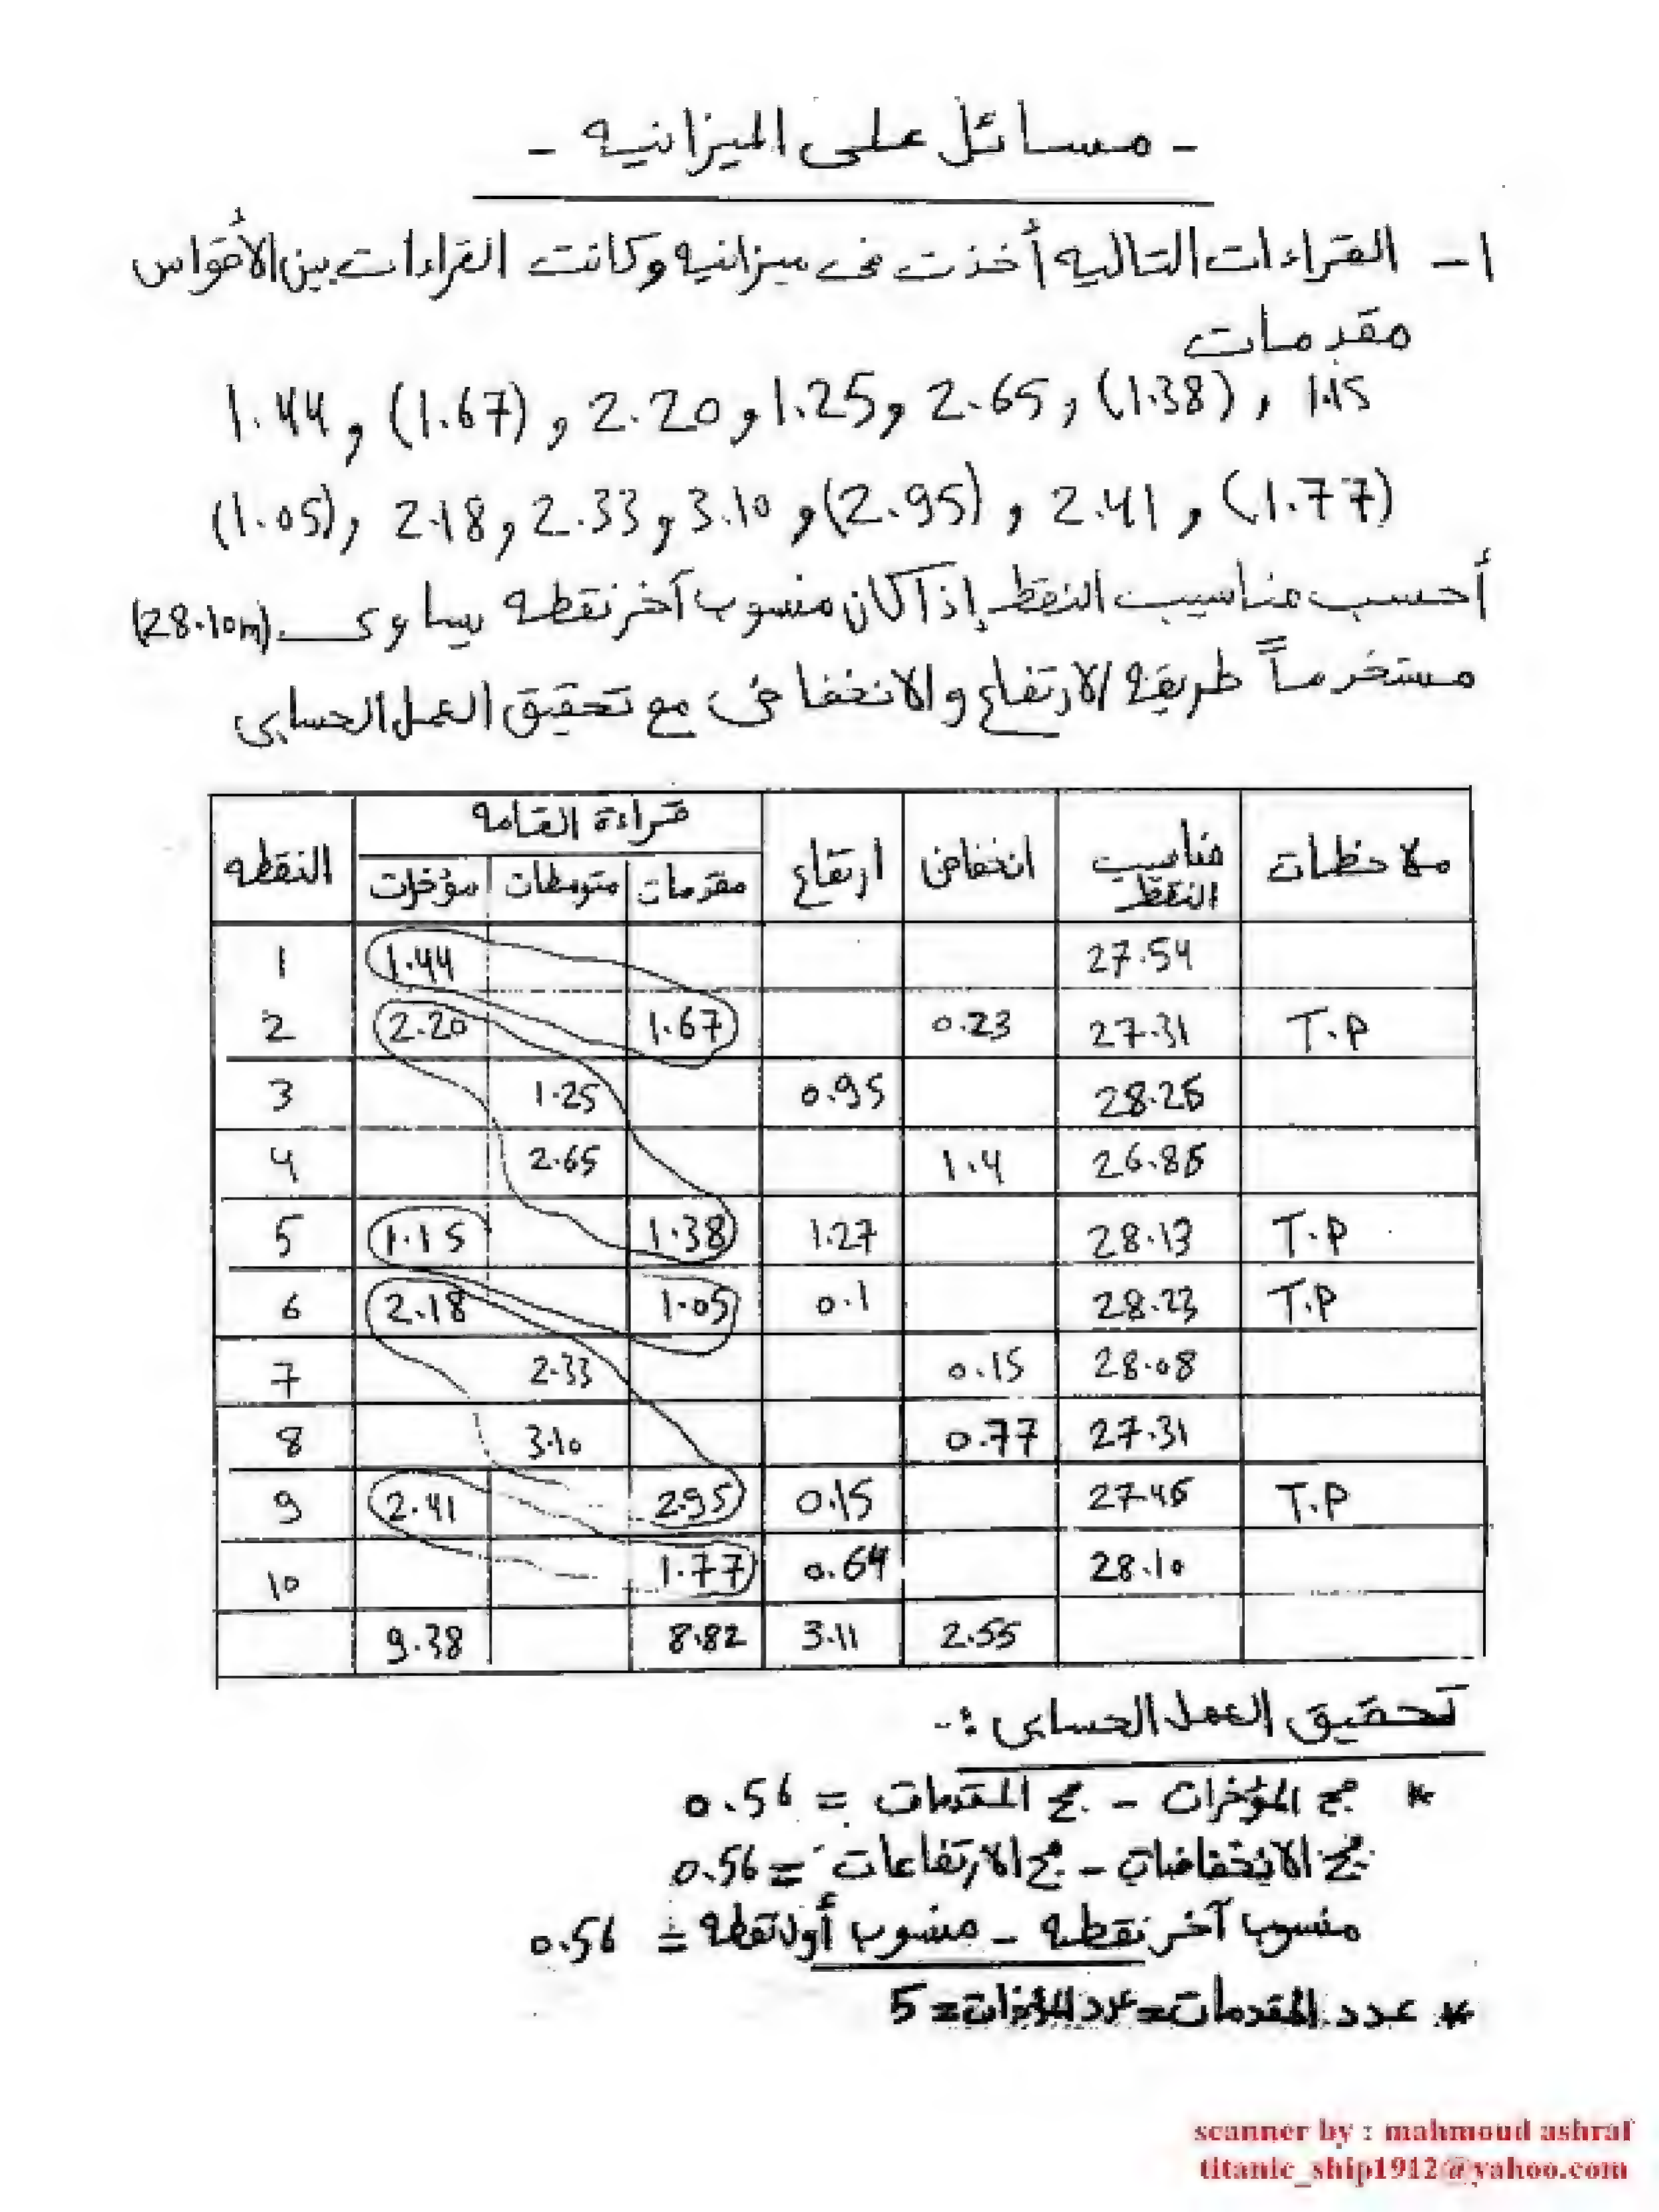 - مسائل على الميزانيه -
١- القراءات التاليه أخذت فى ميزانيه وكانت القراءات بين الأقواس
مقدمات
1.44 , (1.67) , 2.20 , 1.25 , 2.65 , (1.38) , 1.15
(1.05) , 2.18 , 2.33 , 3.10 , (2.95) , 2.41 , (1.77)
أحسب مناسيب النقط إذا كان منسوب آخر نقطه يساوى (28.10m)
مستخدماً طريقة الارتفاع والانخفاض مع تحقيق العمل الحسابى
النقطه قراءة القامه ارتفاع انخفاض مناسيب النقط ملاحظات
مؤخرات متوسطات مقدمات
1 1.44 27.54
2 2.20 1.67 0.23 27.31 T.P
3 1.25 0.95 28.26
4 2.65 1.4 26.86
5 1.15 1.38 1.27 28.13 T.P
6 2.18 1.05 0.1 28.23 T.P
7 2.33 0.15 28.08
8 3.10 0.77 27.31
9 2.41 2.95 0.15 27.46 T.P
10 1.77 0.64 28.10
9.38 8.82 3.11 2.55
تحقيق العمل الحسابى :-
* مج المؤخرات - مج المقدمات = 0.56
مج الانخفاضات - مج الارتفاعات = 0.56
منسوب آخر نقطه - منسوب أول نقطه = 0.56
* عدد المقدمات = عدد المؤخرات = 5
scanner by : mahmoud ashraf
titanic_ship1912@yahoo.com